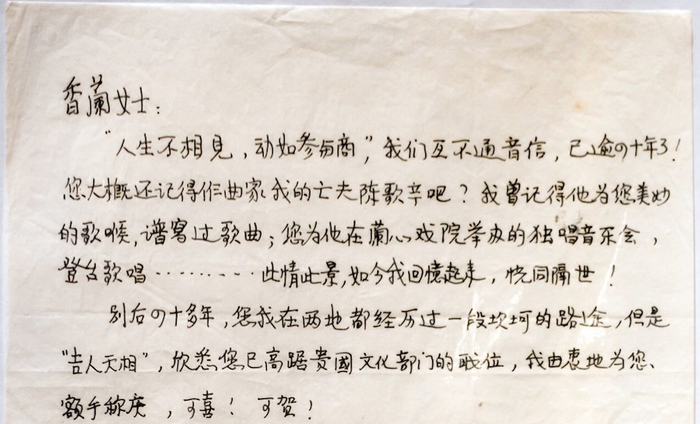 香蘭女士：
“人生不相見，动如参与商”，我们互不通音信，已逾四十年了！
您大概还记得作曲家我的亡夫陈歌辛吧？我曾记得他为您美妙
的歌喉，谱寫过歌曲；您为他在蘭心戏院举办的独唱音乐会，
登台歌唱………此情此景，如今我回憶起来，恍同隔世！
别后四十多年，您我在两地都经历过一段坎坷的路途，但是
“吉人天相”，欣悉您已高踞贵國文化部门的职位，我由衷地为您、
额手称庆，可喜！可贺！